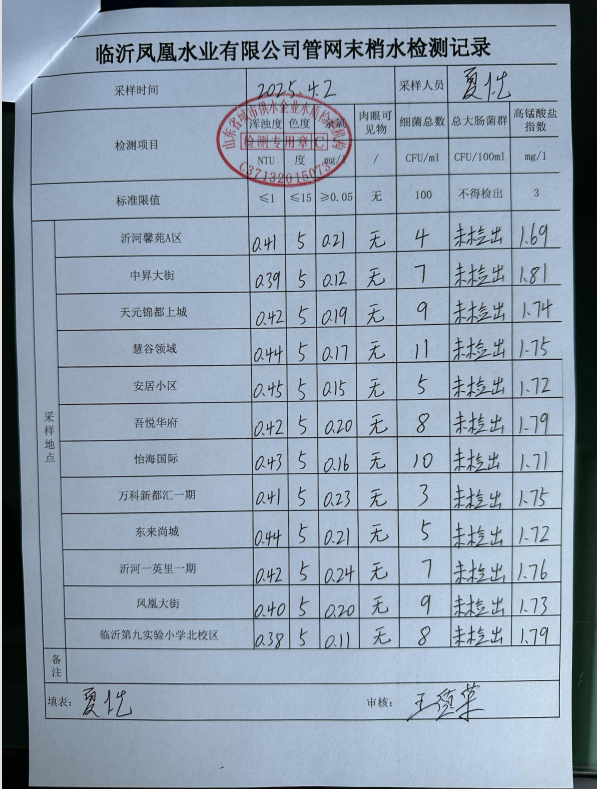 临沂凤凰水业有限公司管网末梢水检测记录
采样时间 2025.4.2 采样人员
检测项目 浑浊度 色度 余氯 肉眼可见物 细菌总数 总大肠菌群 高锰酸盐指数
NTU 度 mg/l / CFU/ml CFU/100ml mg/l
检测专用章 C
C37132015073
标准限值 ≤1 ≤15 ≥0.05 无 100 不得检出 3
采样地点
沂河馨苑A区 0.41 5 0.21 无 4 未检出 1.69
中昇大街 0.39 5 0.12 无 7 未检出 1.81
天元锦都上城 0.42 5 0.19 无 9 未检出 1.74
慧谷领域 0.44 5 0.17 无 11 未检出 1.75
安居小区 0.45 5 0.15 无 5 未检出 1.72
吾悦华府 0.42 5 0.20 无 8 未检出 1.79
怡海国际 0.43 5 0.16 无 10 未检出 1.71
万科新都汇一期 0.41 5 0.23 无 3 未检出 1.75
东来尚城 0.44 5 0.21 无 5 未检出 1.72
沂河一英里一期 0.42 5 0.24 无 7 未检出 1.76
凤凰大街 0.40 5 0.20 无 9 未检出 1.73
临沂第九实验小学北校区 0.38 5 0.11 无 8 未检出 1.79
备注
填表： 审核：